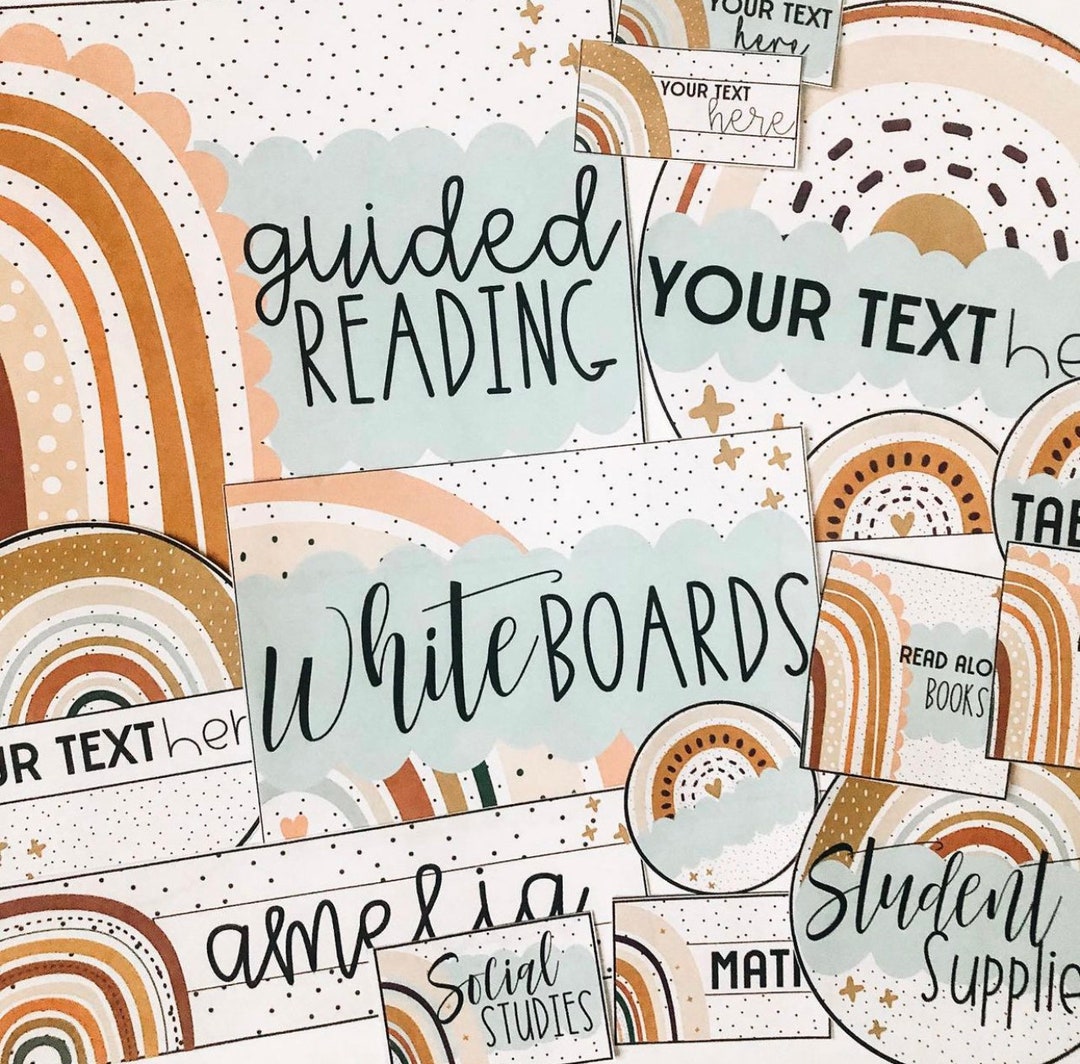 YOUR TEXT
here
YOUR TEXT
here
guided
READING
YOUR TEXT he
TAB
whiteBOARDS
READ ALO
BOOKS
UR TEXT her
amelia
Student
Supplie
Social
STUDIES
MAT